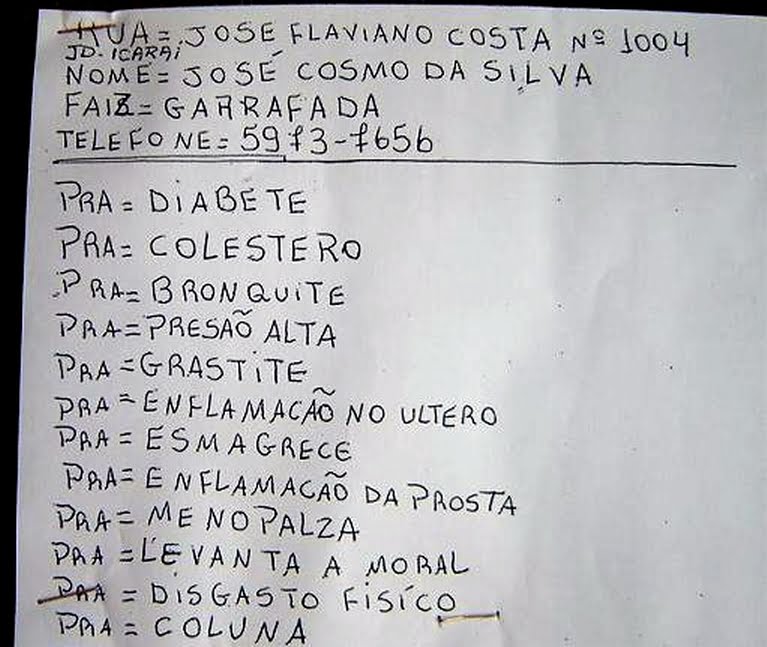 RUA = JOSE FLAVIANO COSTA Nº 1004
JD. ICARAÍ
NOME = JOSÉ COSMO DA SILVA
FAIZ = GARRAFADA
TELEFONE = 5973-7656
PRA = DIABETE
PRA = COLESTERO
PRA = BRONQUITE
PRA = PRESÃO ALTA
PRA = GRASTITE
PRA = ENFLAMACÃO NO ULTERO
PRA = ESMAGRECE
PRA = ENFLAMACÃO DA PROSTA
PRA = MENOPALZA
PRA = LEVANTA A MORAL
PRA = DISGASTO FISÍCO
PRA = COLUNA